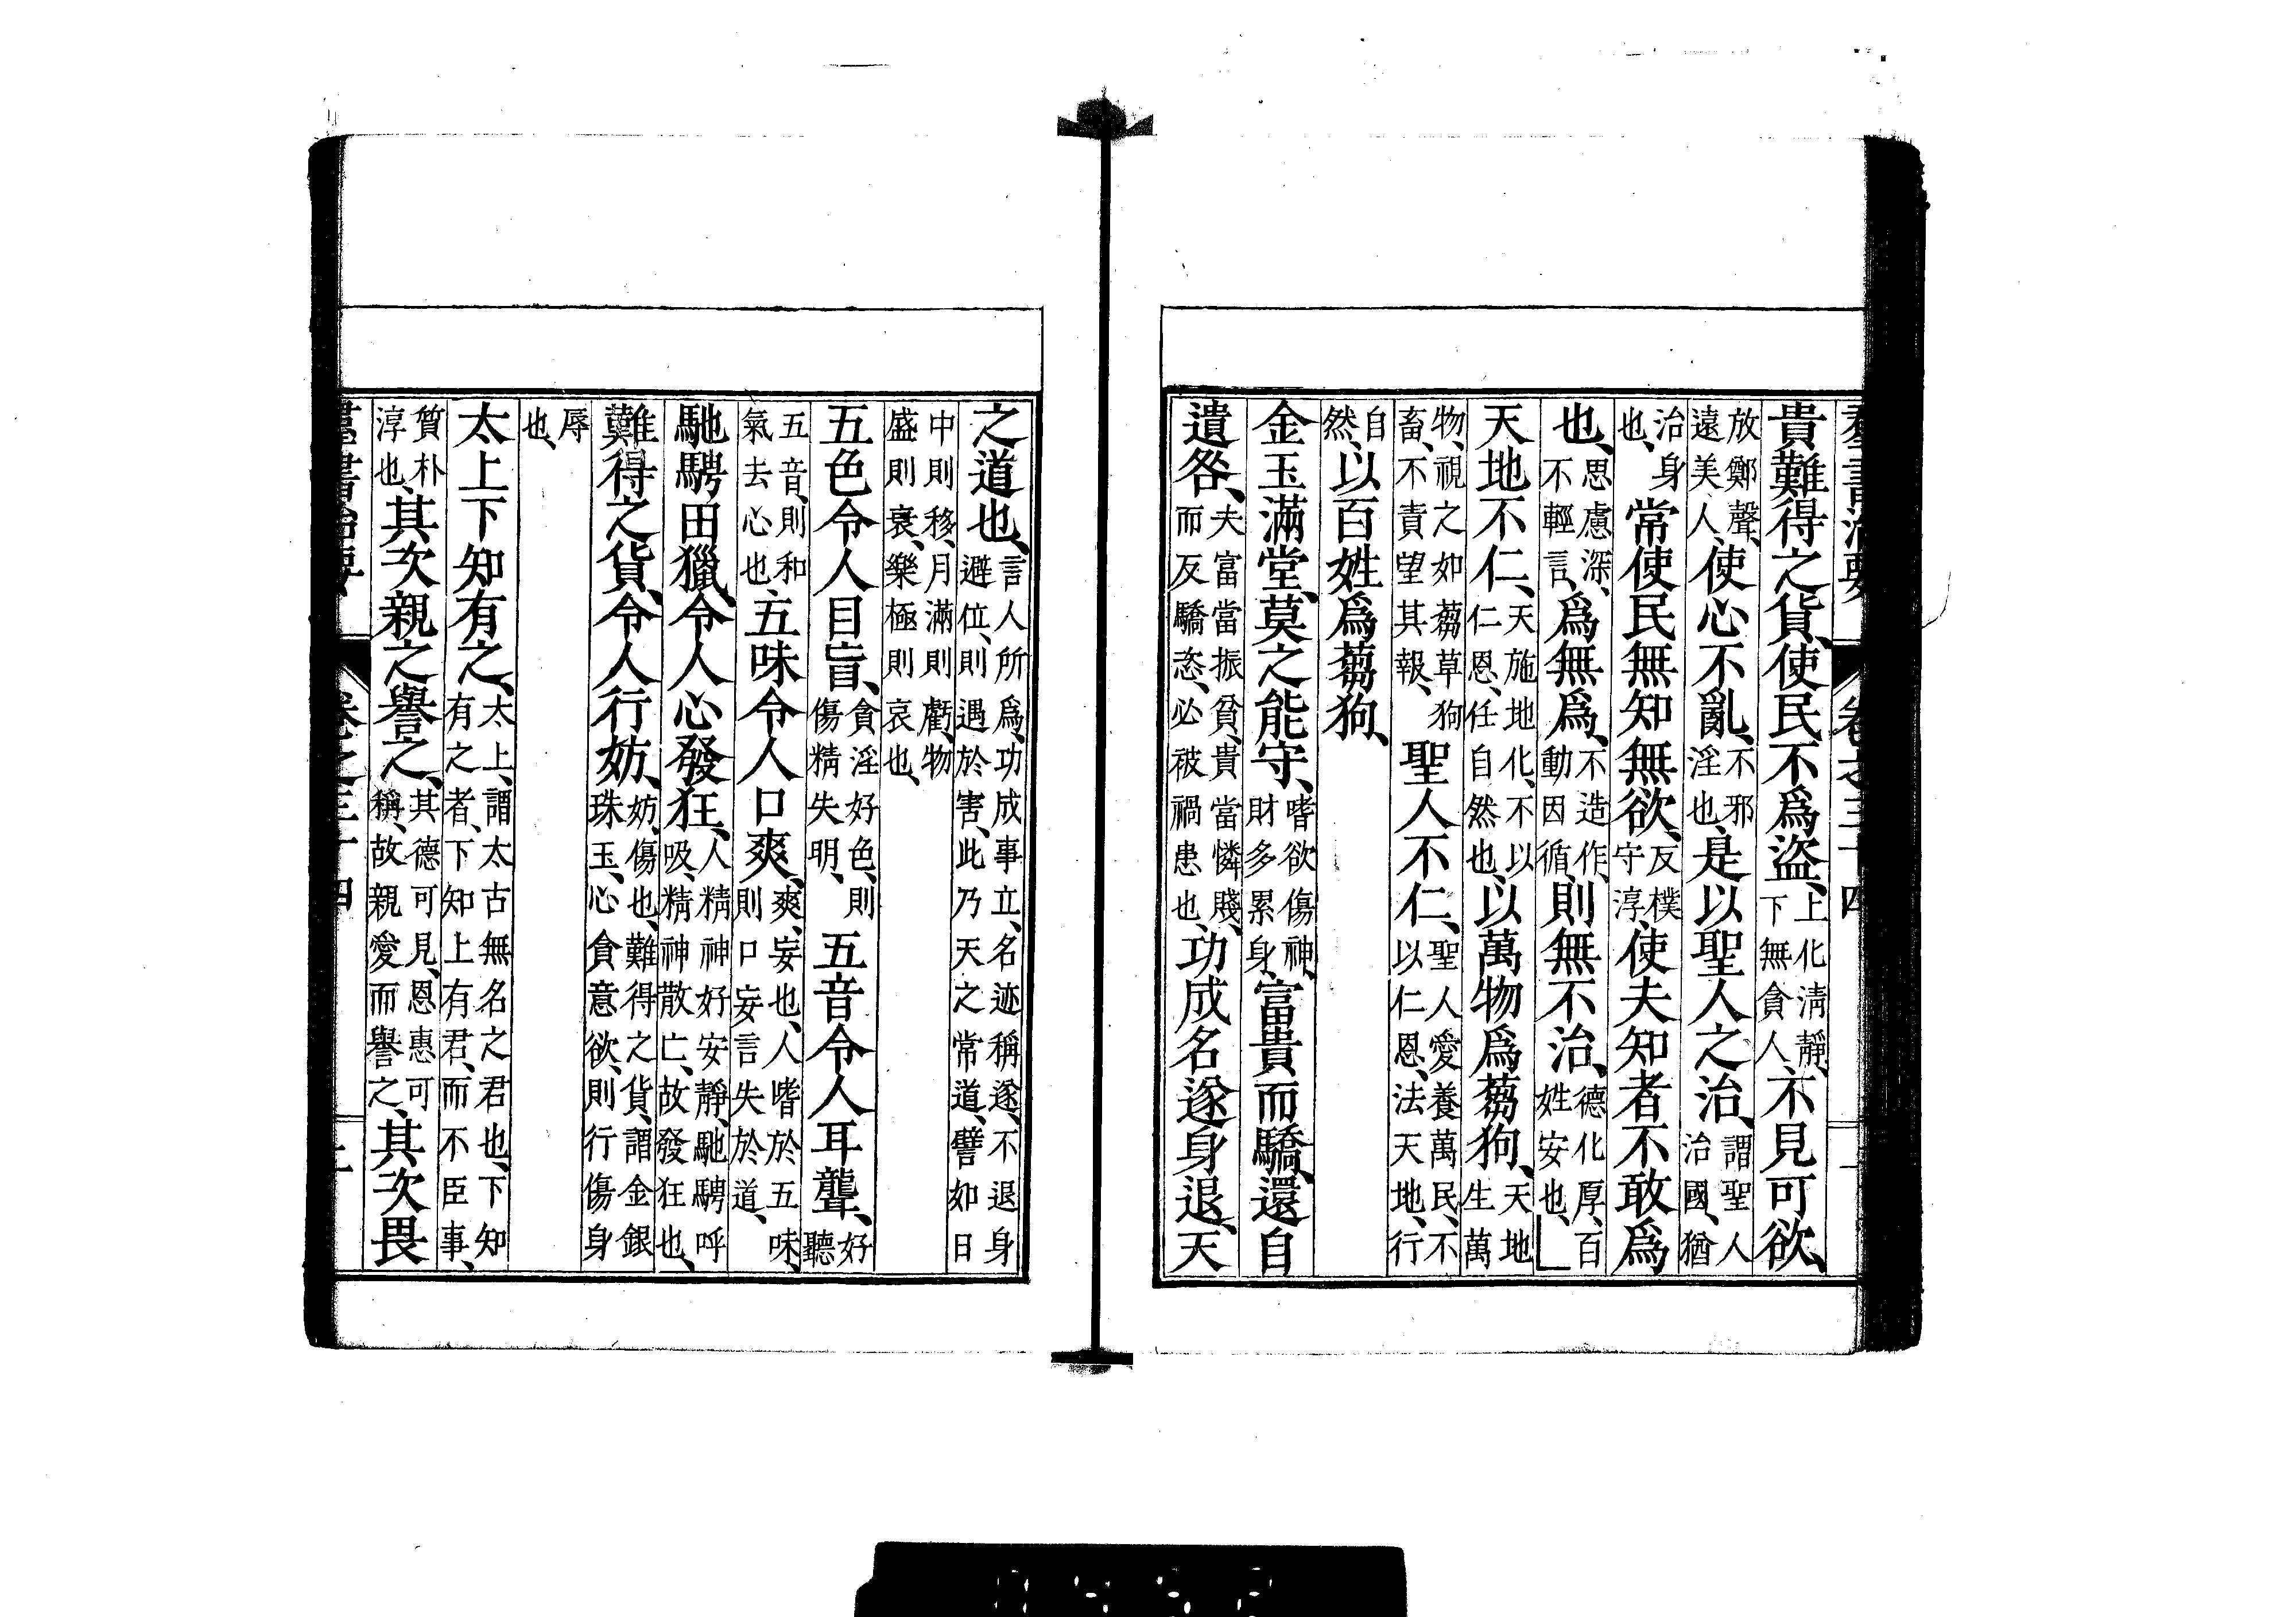 羣書治要 卷之三十四
貴難得之貨、使民不爲盜、上化淸靜、下無貪人、不見可欲、
放鄭聲、遠美人、使心不亂、不邪淫也、是以聖人之治、謂聖人治國、猶
治身也、常使民無知無欲、反樸守淳、使夫知者不敢爲
也、思慮深、不輕言、爲無爲、不造作、動因循、則無不治、德化厚、百姓安也、
天地不仁、天施地化、不以仁恩、任自然也、以萬物爲芻狗、天地生萬
物、視之如芻草狗畜、不責望其報、聖人不仁、聖人愛養萬民、不以仁恩、法天地、行
自然、以百姓爲芻狗、
金玉滿堂、莫之能守、嗜欲傷神、財多累身、富貴而驕、還自
遺咎、夫富當振貧、貴當憐賤、而反驕恣、必被禍患也、功成名遂身退、天
之道也、言人所爲、功成事立、名迹稱遂、不退身避位、則遇於害、此乃天之常道、譬如日
中則移、月滿則虧、物盛則衰、樂極則哀也、
五色令人目盲、貪淫好色、則傷精失明、五音令人耳聾、好聽
五音、則和氣去心也、五味令人口爽、爽、妄也、人嗜於五味、則口妄言失於道、
馳騁田獵、令人心發狂、人精神好安靜、馳騁呼吸、精神散亡、故發狂也、
難得之貨、令人行妨、妨、傷也、難得之貨、謂金銀珠玉、心貪意欲、則行傷身
辱也、
太上下知有之、太上、謂太古無名之君也、下知有之者、下知上有君、而不臣事、
質朴淳也、其次親之譽之、其德可見、恩惠可稱、故親愛而譽之、其次畏
羣書治要 卷之三十四 二